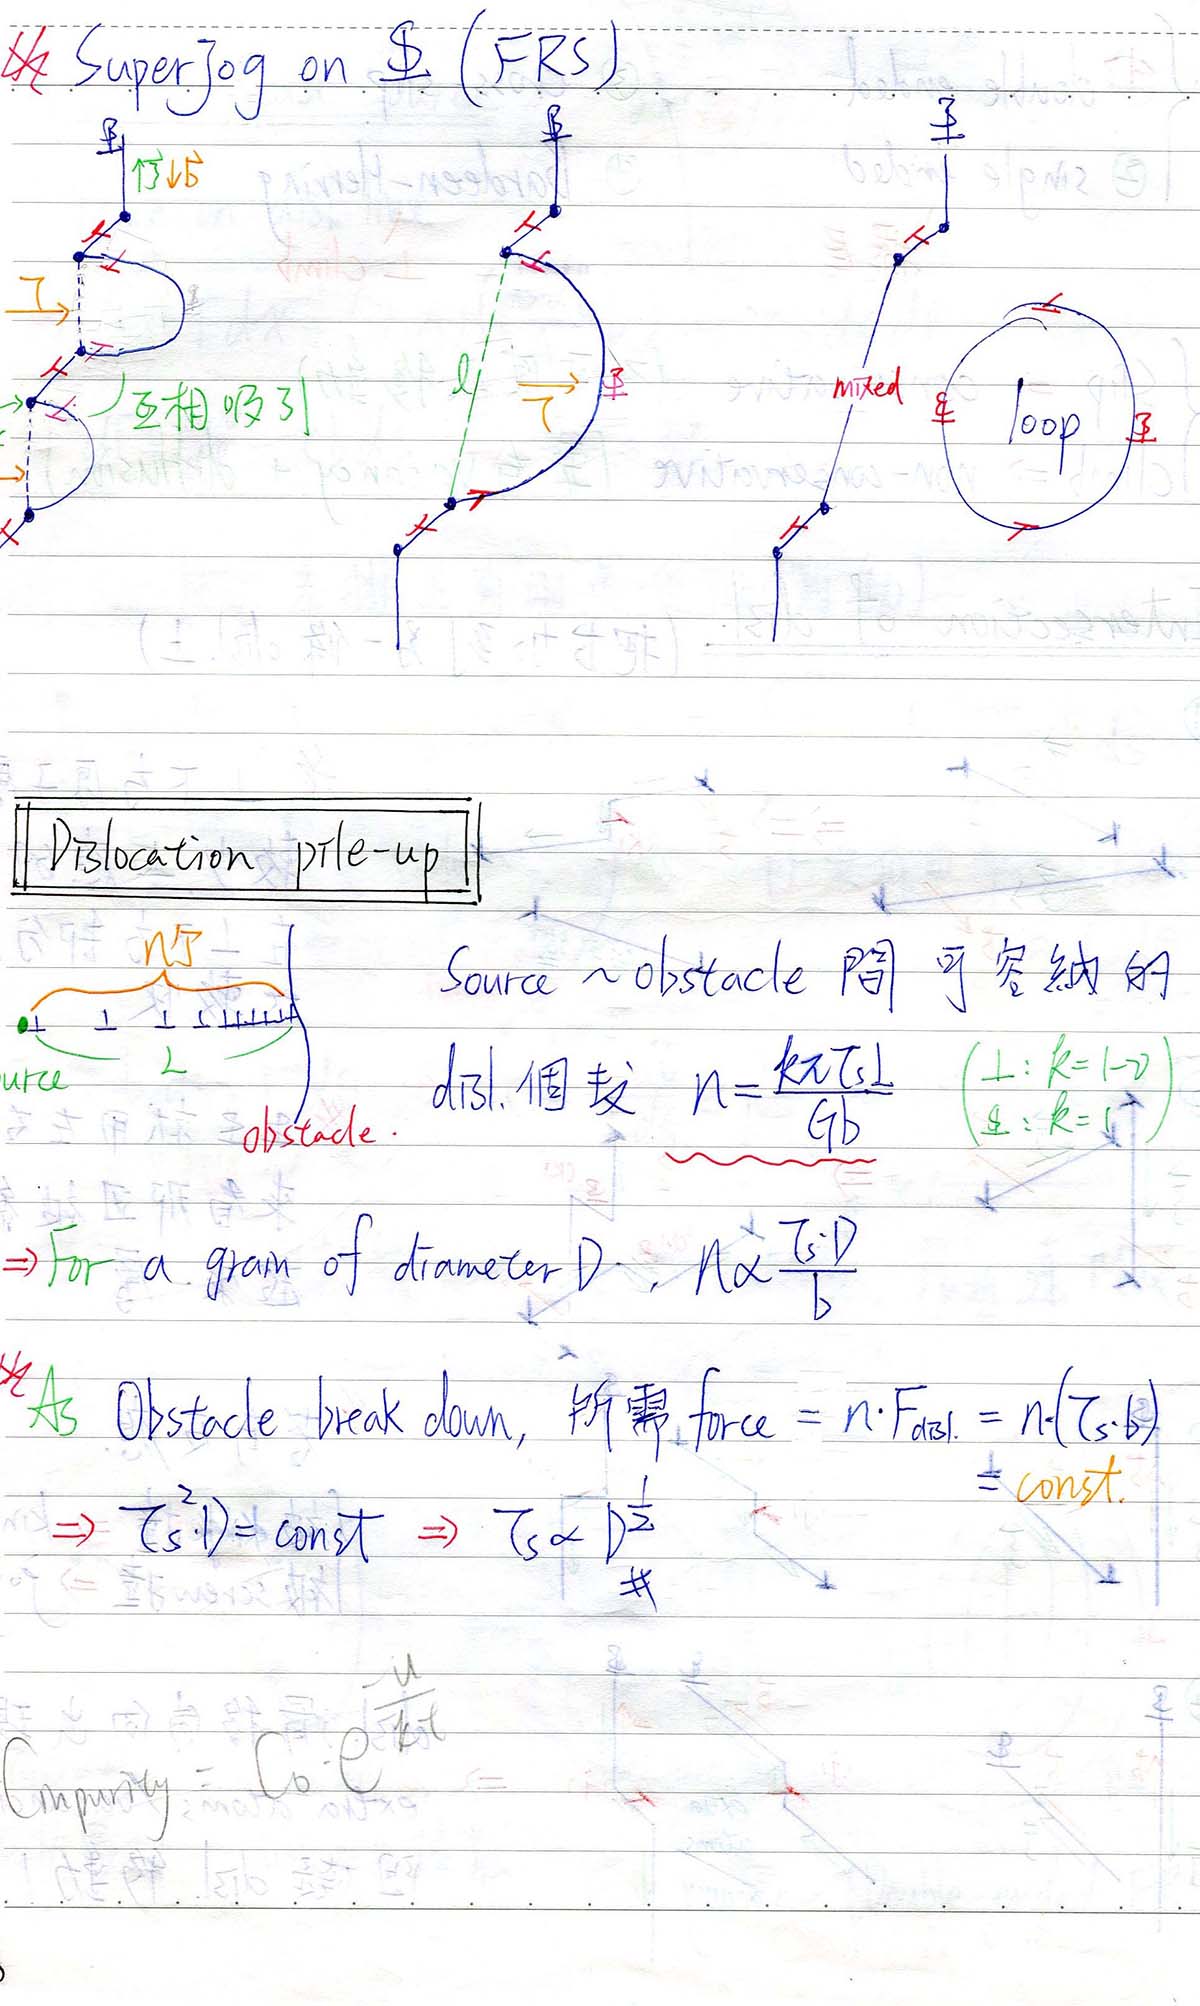 Superjog on (FRS)
ξ b
τ
互相吸引
l
τ
mixed
loop
Dislocation pile-up
n個
Source ~ obstacle 間可容納的
L
obstacle.
disl. 個數 n = kπτsL / Gb
(⊥: k=1-ν
: k=1)
⇒ For a grain of diameter D, n ∝ τs·D / b
As Obstacle break down, 所需 force = n·Fdisl. = n·(τs·b)
= const.
⇒ τs²·D = const ⇒ τs ∝ D^½
Cimpurity = C0·e^(u/kT)